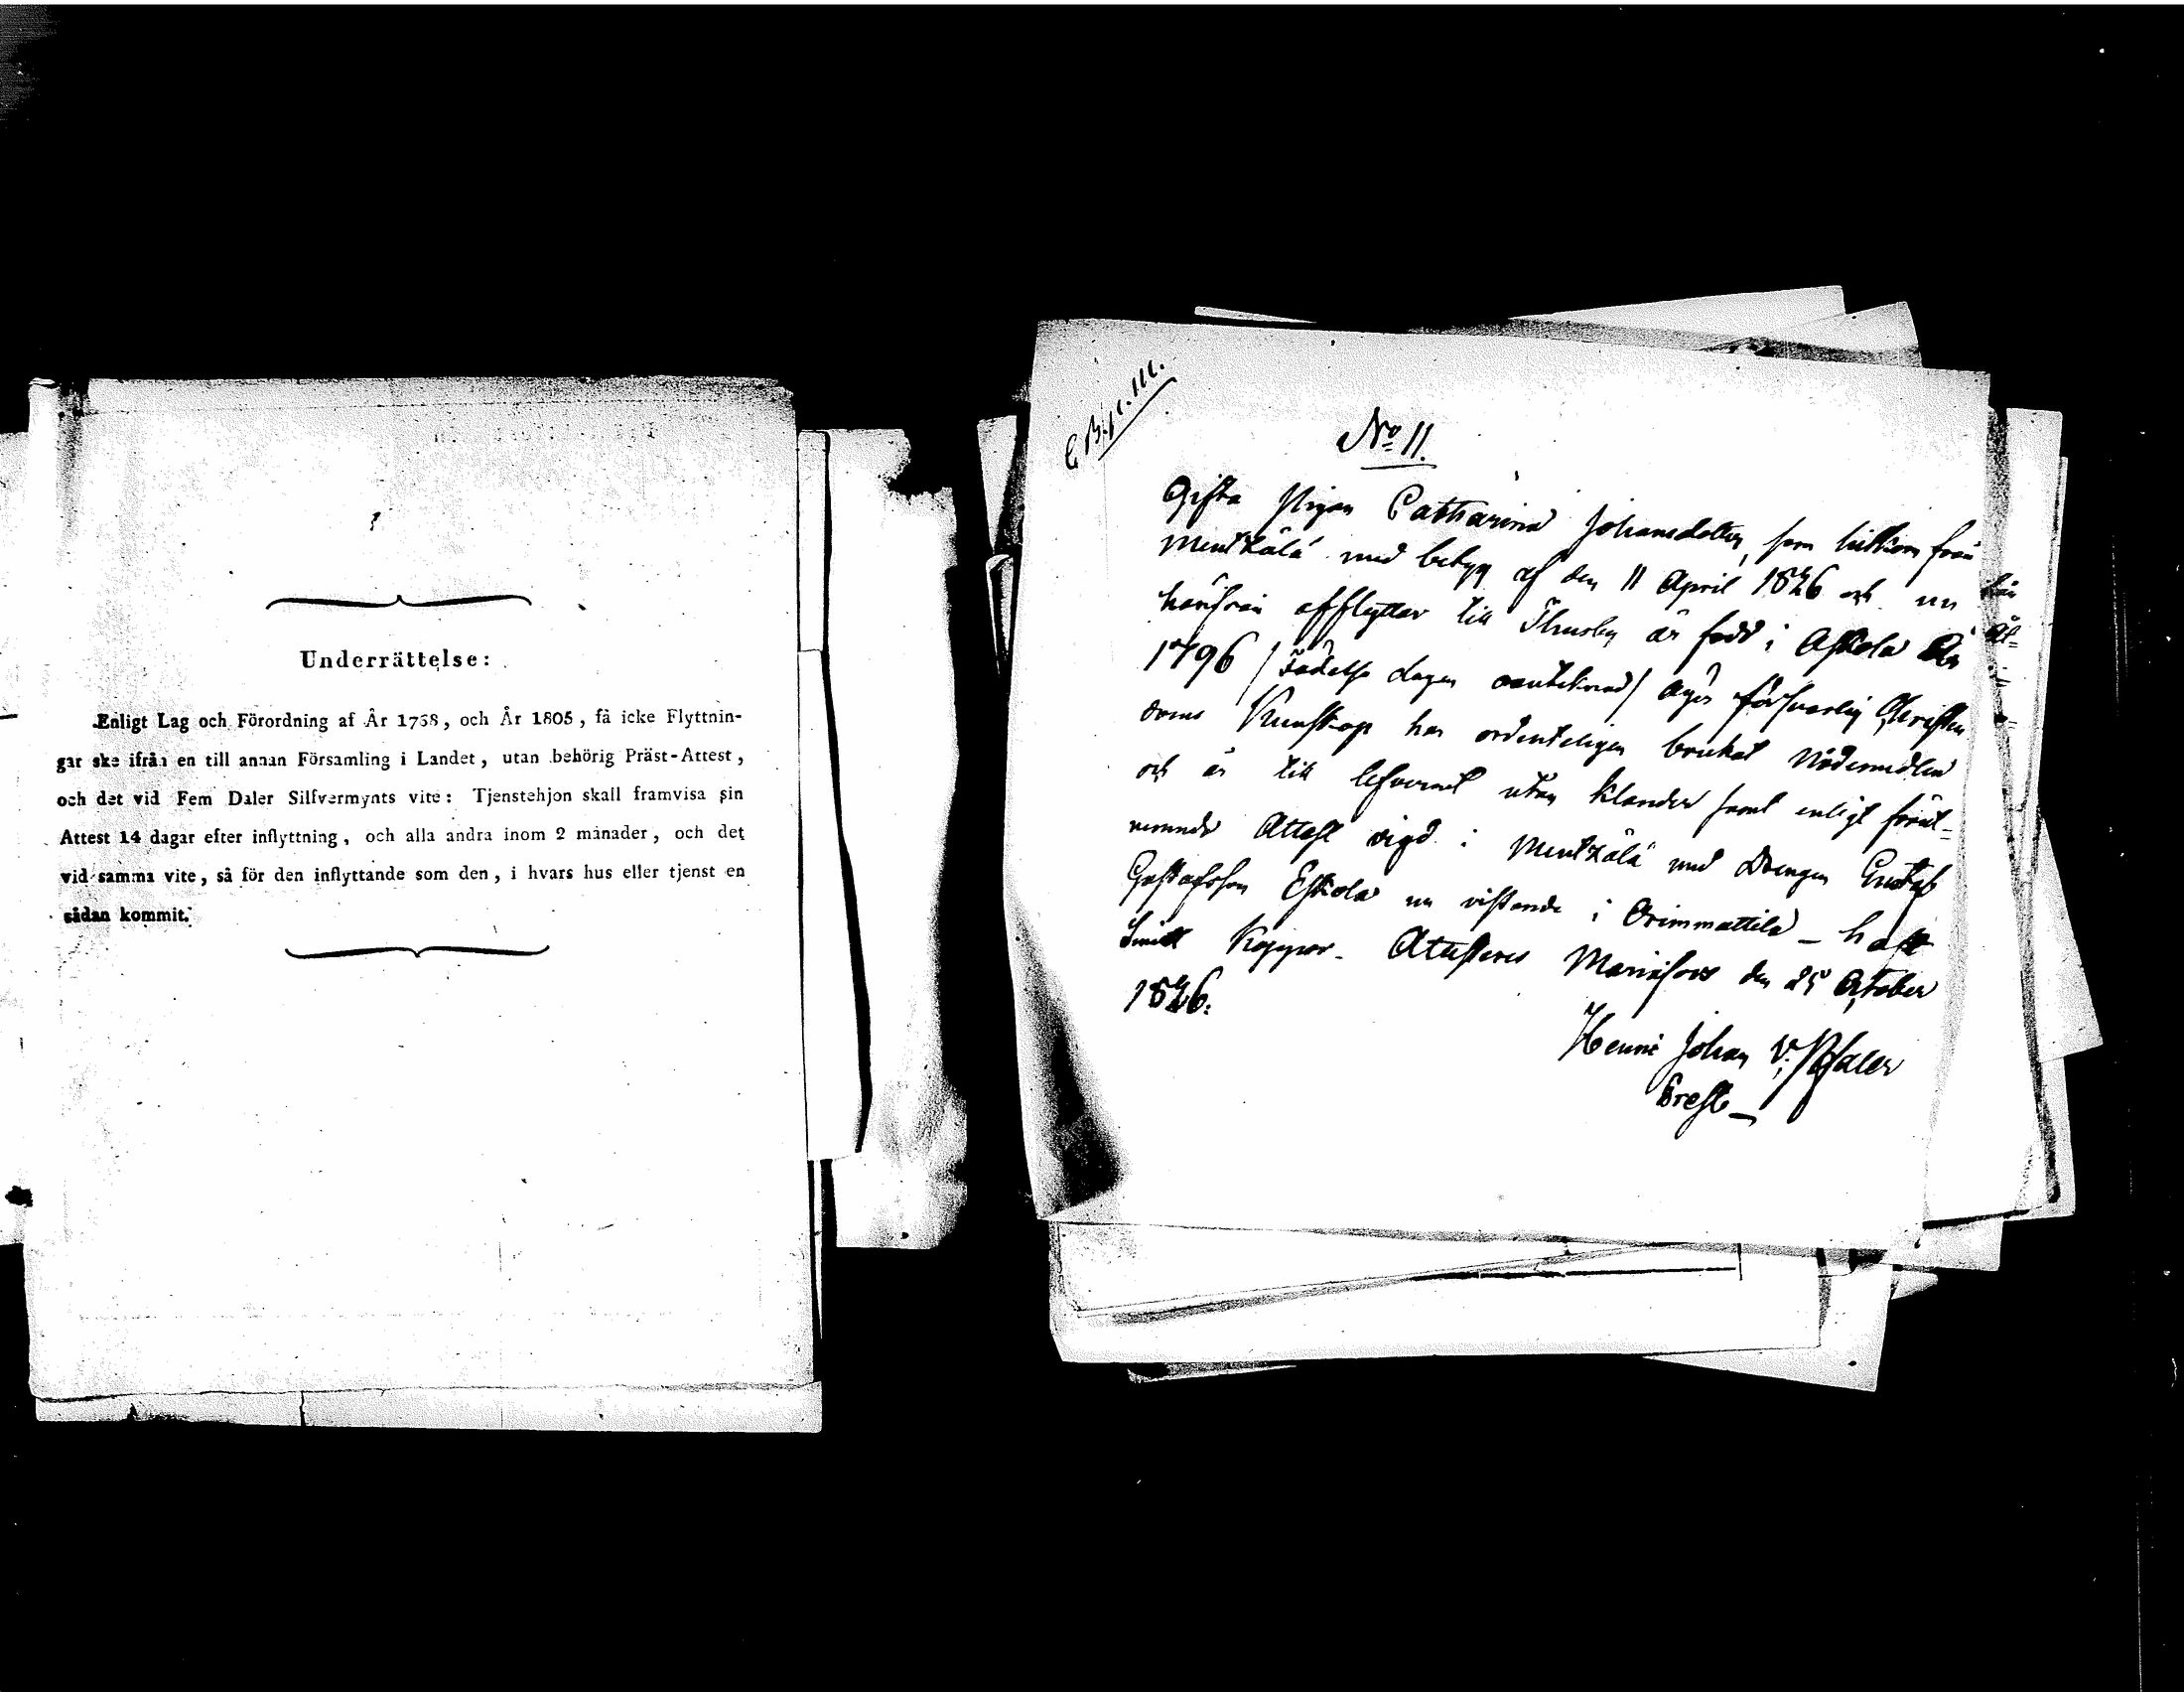 Underrättelse:
Enligt Lag och Förordning af År 1738, och År 1805, få icke Flyttnin-
gar ske ifrån en till annan Församling i Landet, utan behörig Präst-Attest,
och det vid Fem Daler Silfvermynts vite: Tjenstehjon skall framvisa sin
Attest 14 dagar efter inflyttning, och alla andra inom 2 månader, och det
vid samma vite, så för den inflyttande som den, i hvars hus eller tjenst en
sådan kommit.
No 11.
Gifta Pigan Catharina Johansdotter, som hitkom från
Mentzälä med betyg af den 11 April 1826 och nu
härifrån afflyttar till Thusby är född i Askola År
1796 /födelse dagen oanteknad/ äger försvarlig Christen
doms Kunskap har ordenteligen brukat Nådemedlen
och är till lefvernet utan klander samt enligt föröt-
nämnde Attest vigd i Mentzälä med Drengen Gustaf
Gustafsson Eskola nu vistande i Orimmattila - haft
Smitt Koppor. Attesteras Mariefors den 25 October
1826.
Henric Johan V. Pfaler
Præst.